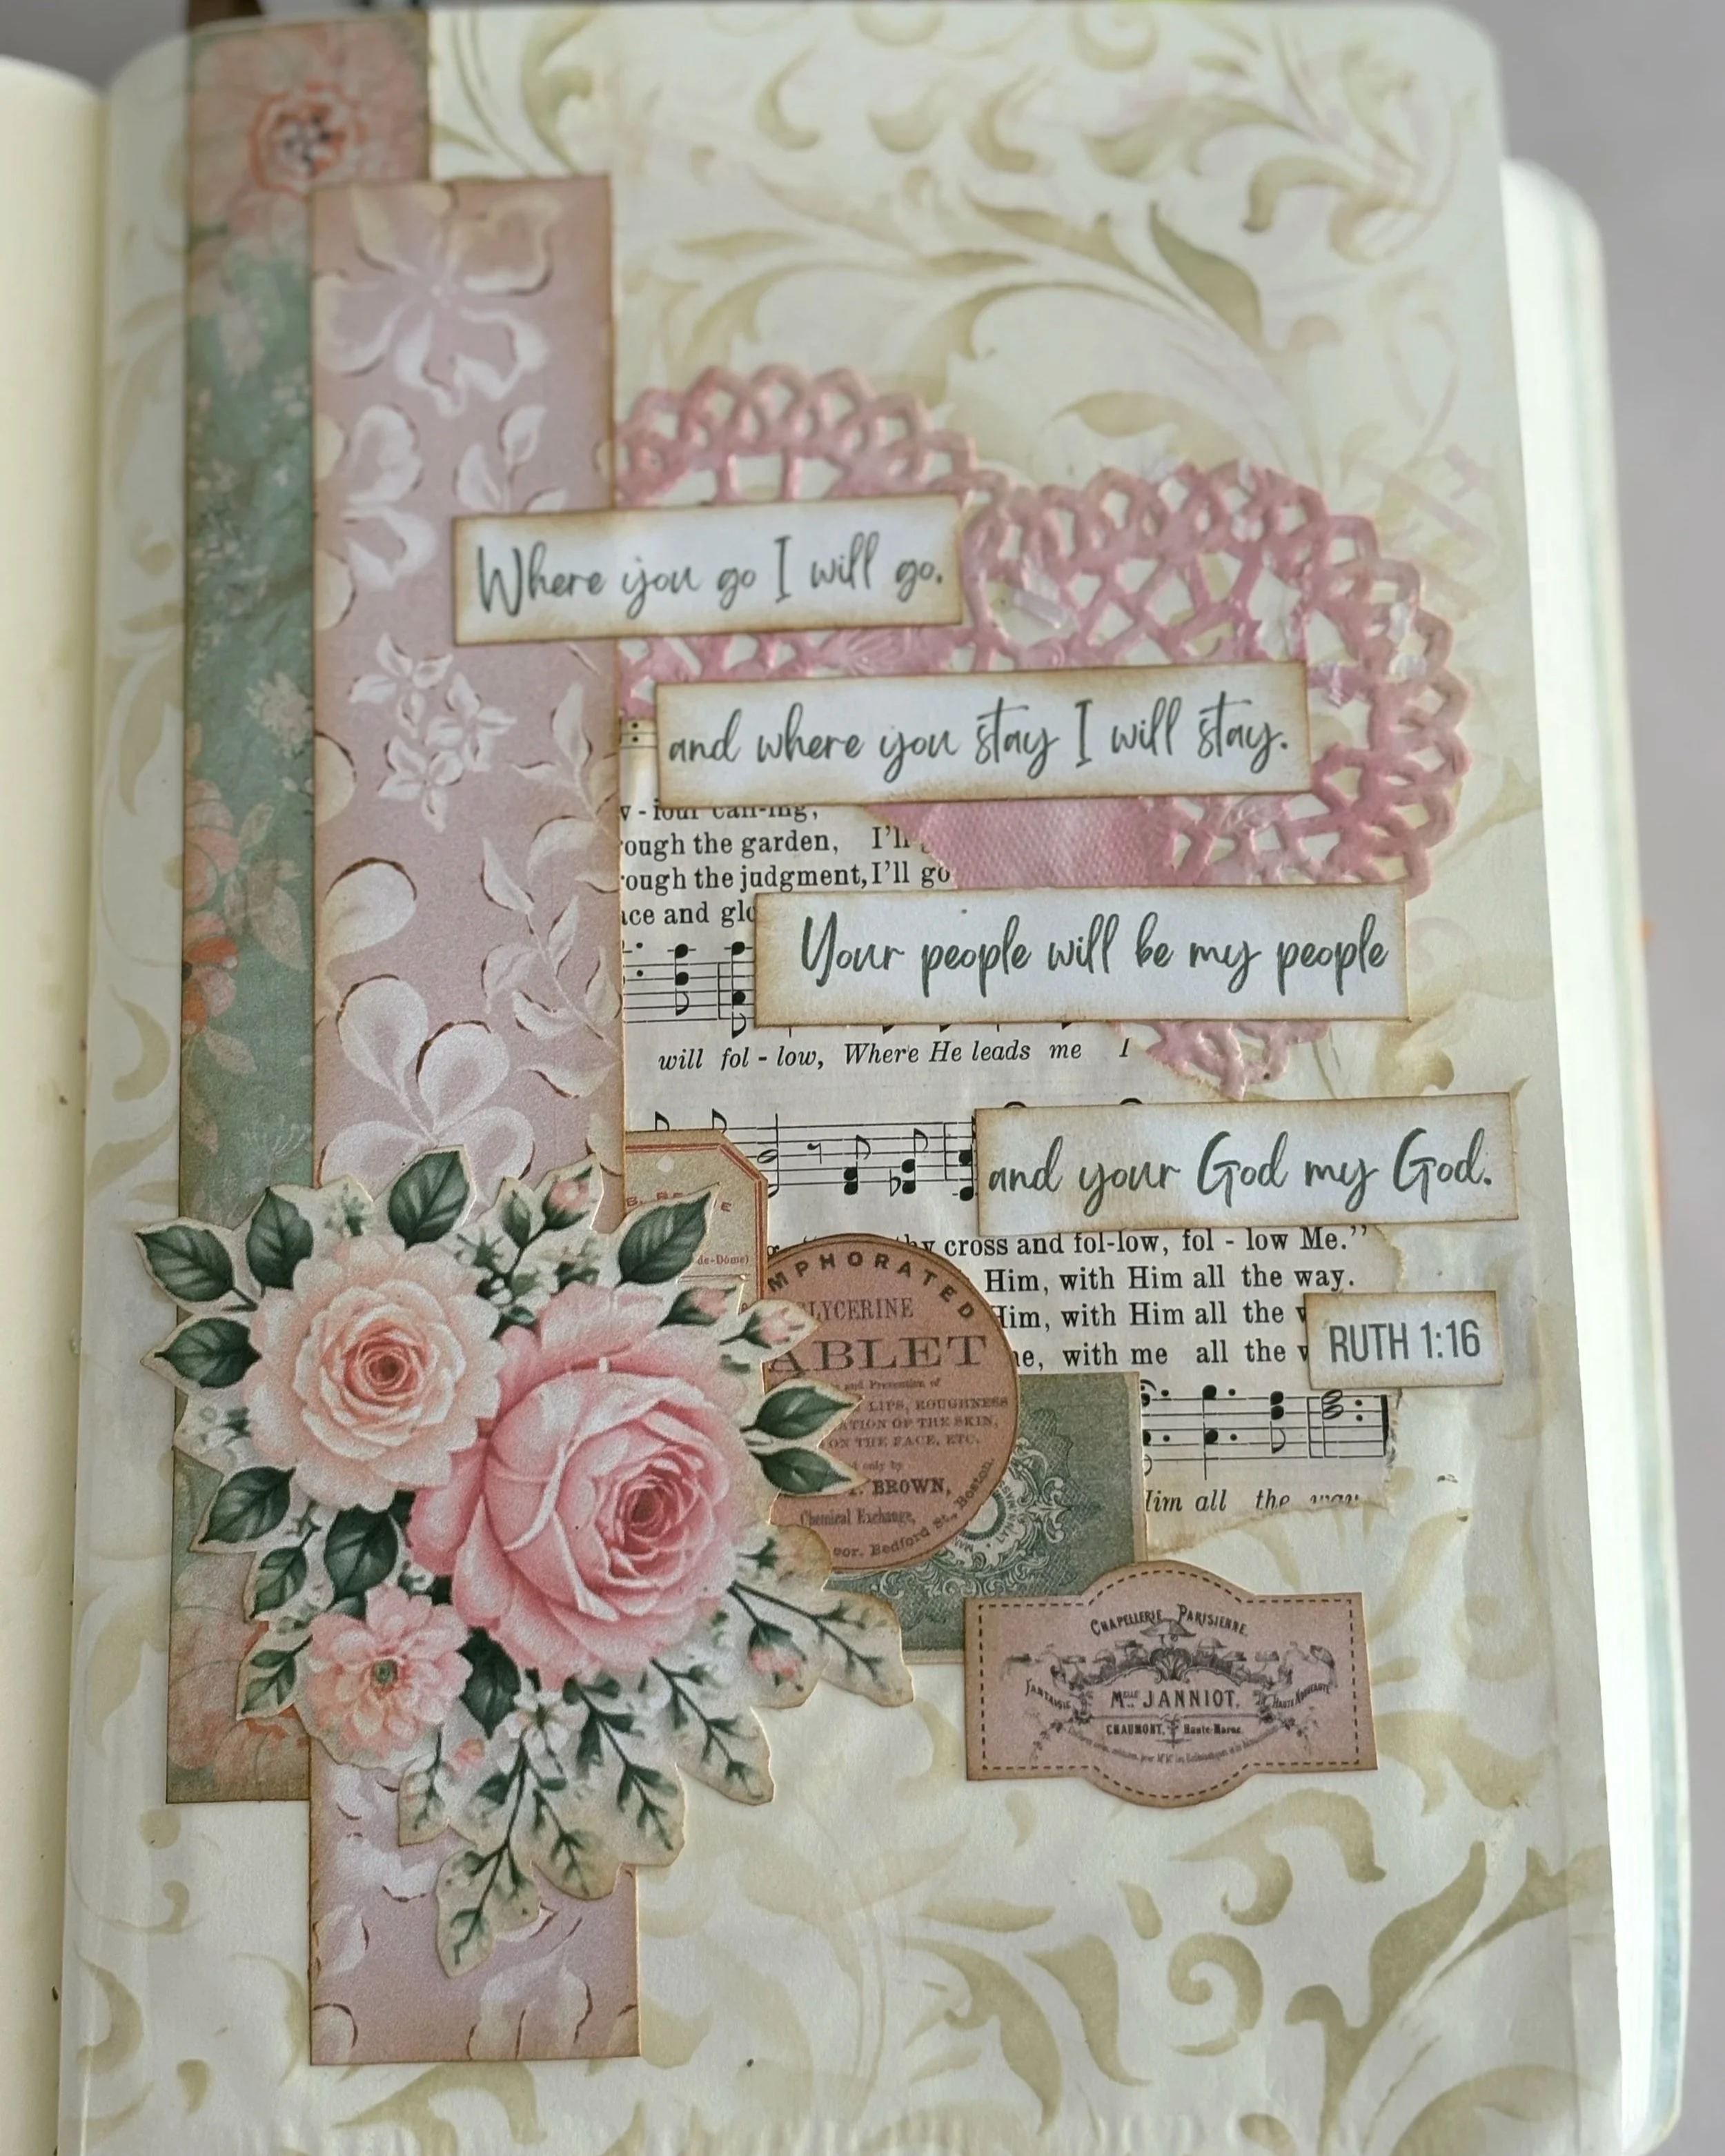 Where you go I will go.
and where you stay I will stay.
ough the garden, I'll
ough the judgment, I'll go
ace and glo
Your people will be my people
will fol - low, Where He leads me I
and your God my God.
cross and fol-low, fol - low Me."
Him, with Him all the way.
Him, with Him all the
me, with me all the
RUTH 1:16
Him all the way
de-Dôme)
MPHORATED
GLYCERINE
ABLET
and Prevention of
LIPS, ROUGHNESS
ATION OF THE SKIN,
ON THE FACE, ETC.
only by
BROWN,
Chemical Exchange,
oor. Bedford St., Boston.
CHAPELLERIE PARISIENNE
FANTAISIE
MELLE JANNIOT.
HAUTE NOUVEAUTÉ
CHAUMONT, Haute-Marne.